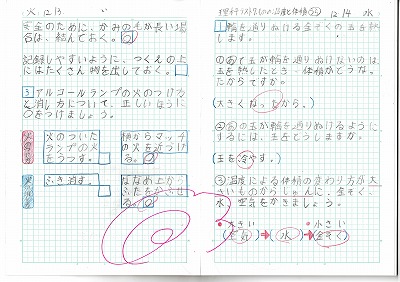 火 12.13.
安全のために、かみの毛が長い場
合は、結んでおく。
記録しやすいように、つくえの上
にはたくさん物を出しておく。
3 アルコールランプの火のつけ方
と消し方について、正しいほうに
○をつけましょう。
火のついた
ランプの火
をうつす。
横からマッチ
の火を近づけ
る。
ふき消す。
ななめ上から
ふたをかぶせ
る。
12/14 水
1 輪を通りぬける金ぞくの玉を熱
します。
玉が輪を通りぬけないのは
玉を熱したとき、体積がどうな
たからですか。
(大きくなったから。)
玉が輪を通りぬけるように
するには、玉をどうしますか。
(玉を冷やす。)
③温度による体積の変わり方が大
きいものからじゅんに、金ぞく、
水、空気をかきましょう。
大きい 小さい
(空気)➡(水)➡(金ぞく)